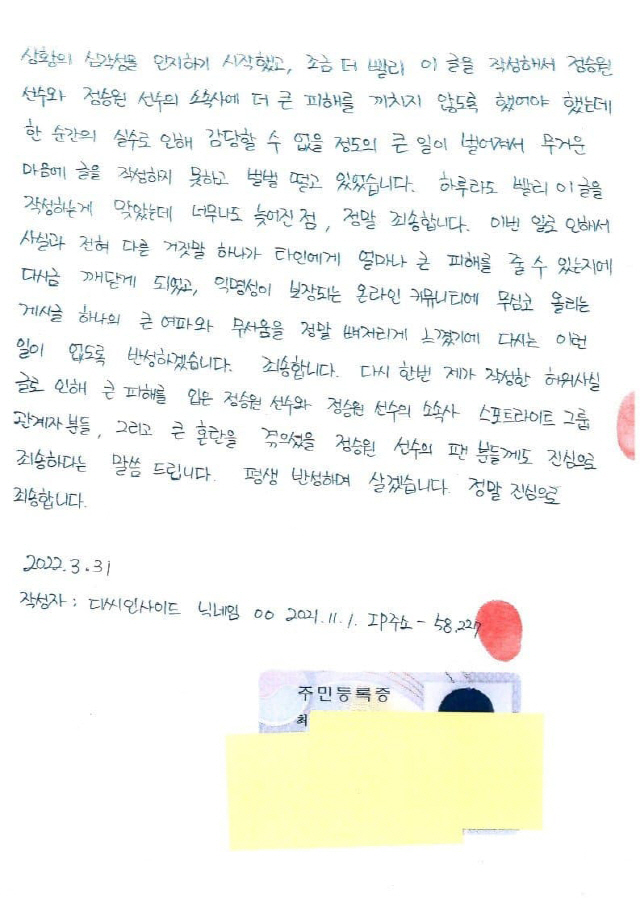 상황의 심각성을 인지하기 시작했고, 조금 더 빨리 이 글을 작성해서 정승원
선수와 정승원 선수의 소속사에 더 큰 피해를 끼치지 않도록 했어야 했는데
한 순간의 실수로 인해 감당할 수 없을 정도의 큰 일이 벌어져서 무거운
마음에 글을 작성하지 못하고 벌벌 떨고 있었습니다. 하루라도 빨리 이 글을
작성하는게 맞았는데 너무나도 늦어진 점, 정말 죄송합니다. 이번 일로 인해서
사실과 전혀 다른 거짓말 하나가 타인에게 얼마나 큰 피해를 줄 수 있는지에
다시금 깨닫게 되었고, 익명성이 보장되는 온라인 커뮤니티에 무심코 올리는
게시글 하나의 큰 여파와 무서움을 정말 뼈저리게 느꼈기에 다시는 이런
일이 없도록 반성하겠습니다. 죄송합니다. 다시 한번 제가 작성한 허위사실
글로 인해 큰 피해를 입은 정승원 선수와 정승원 선수의 소속사 스포트라이트 그룹
관계자 분들, 그리고 큰 혼란을 겪으셨을 정승원 선수의 팬 분들께도 진심으로
죄송하다는 말씀 드립니다. 평생 반성하며 살겠습니다. 정말 진심으로
죄송합니다.
2022.3.31
작성자 : 디씨인사이드 닉네임 ㅇㅇ 2021.11.1. IP주소 - 58.227
주민등록증
최